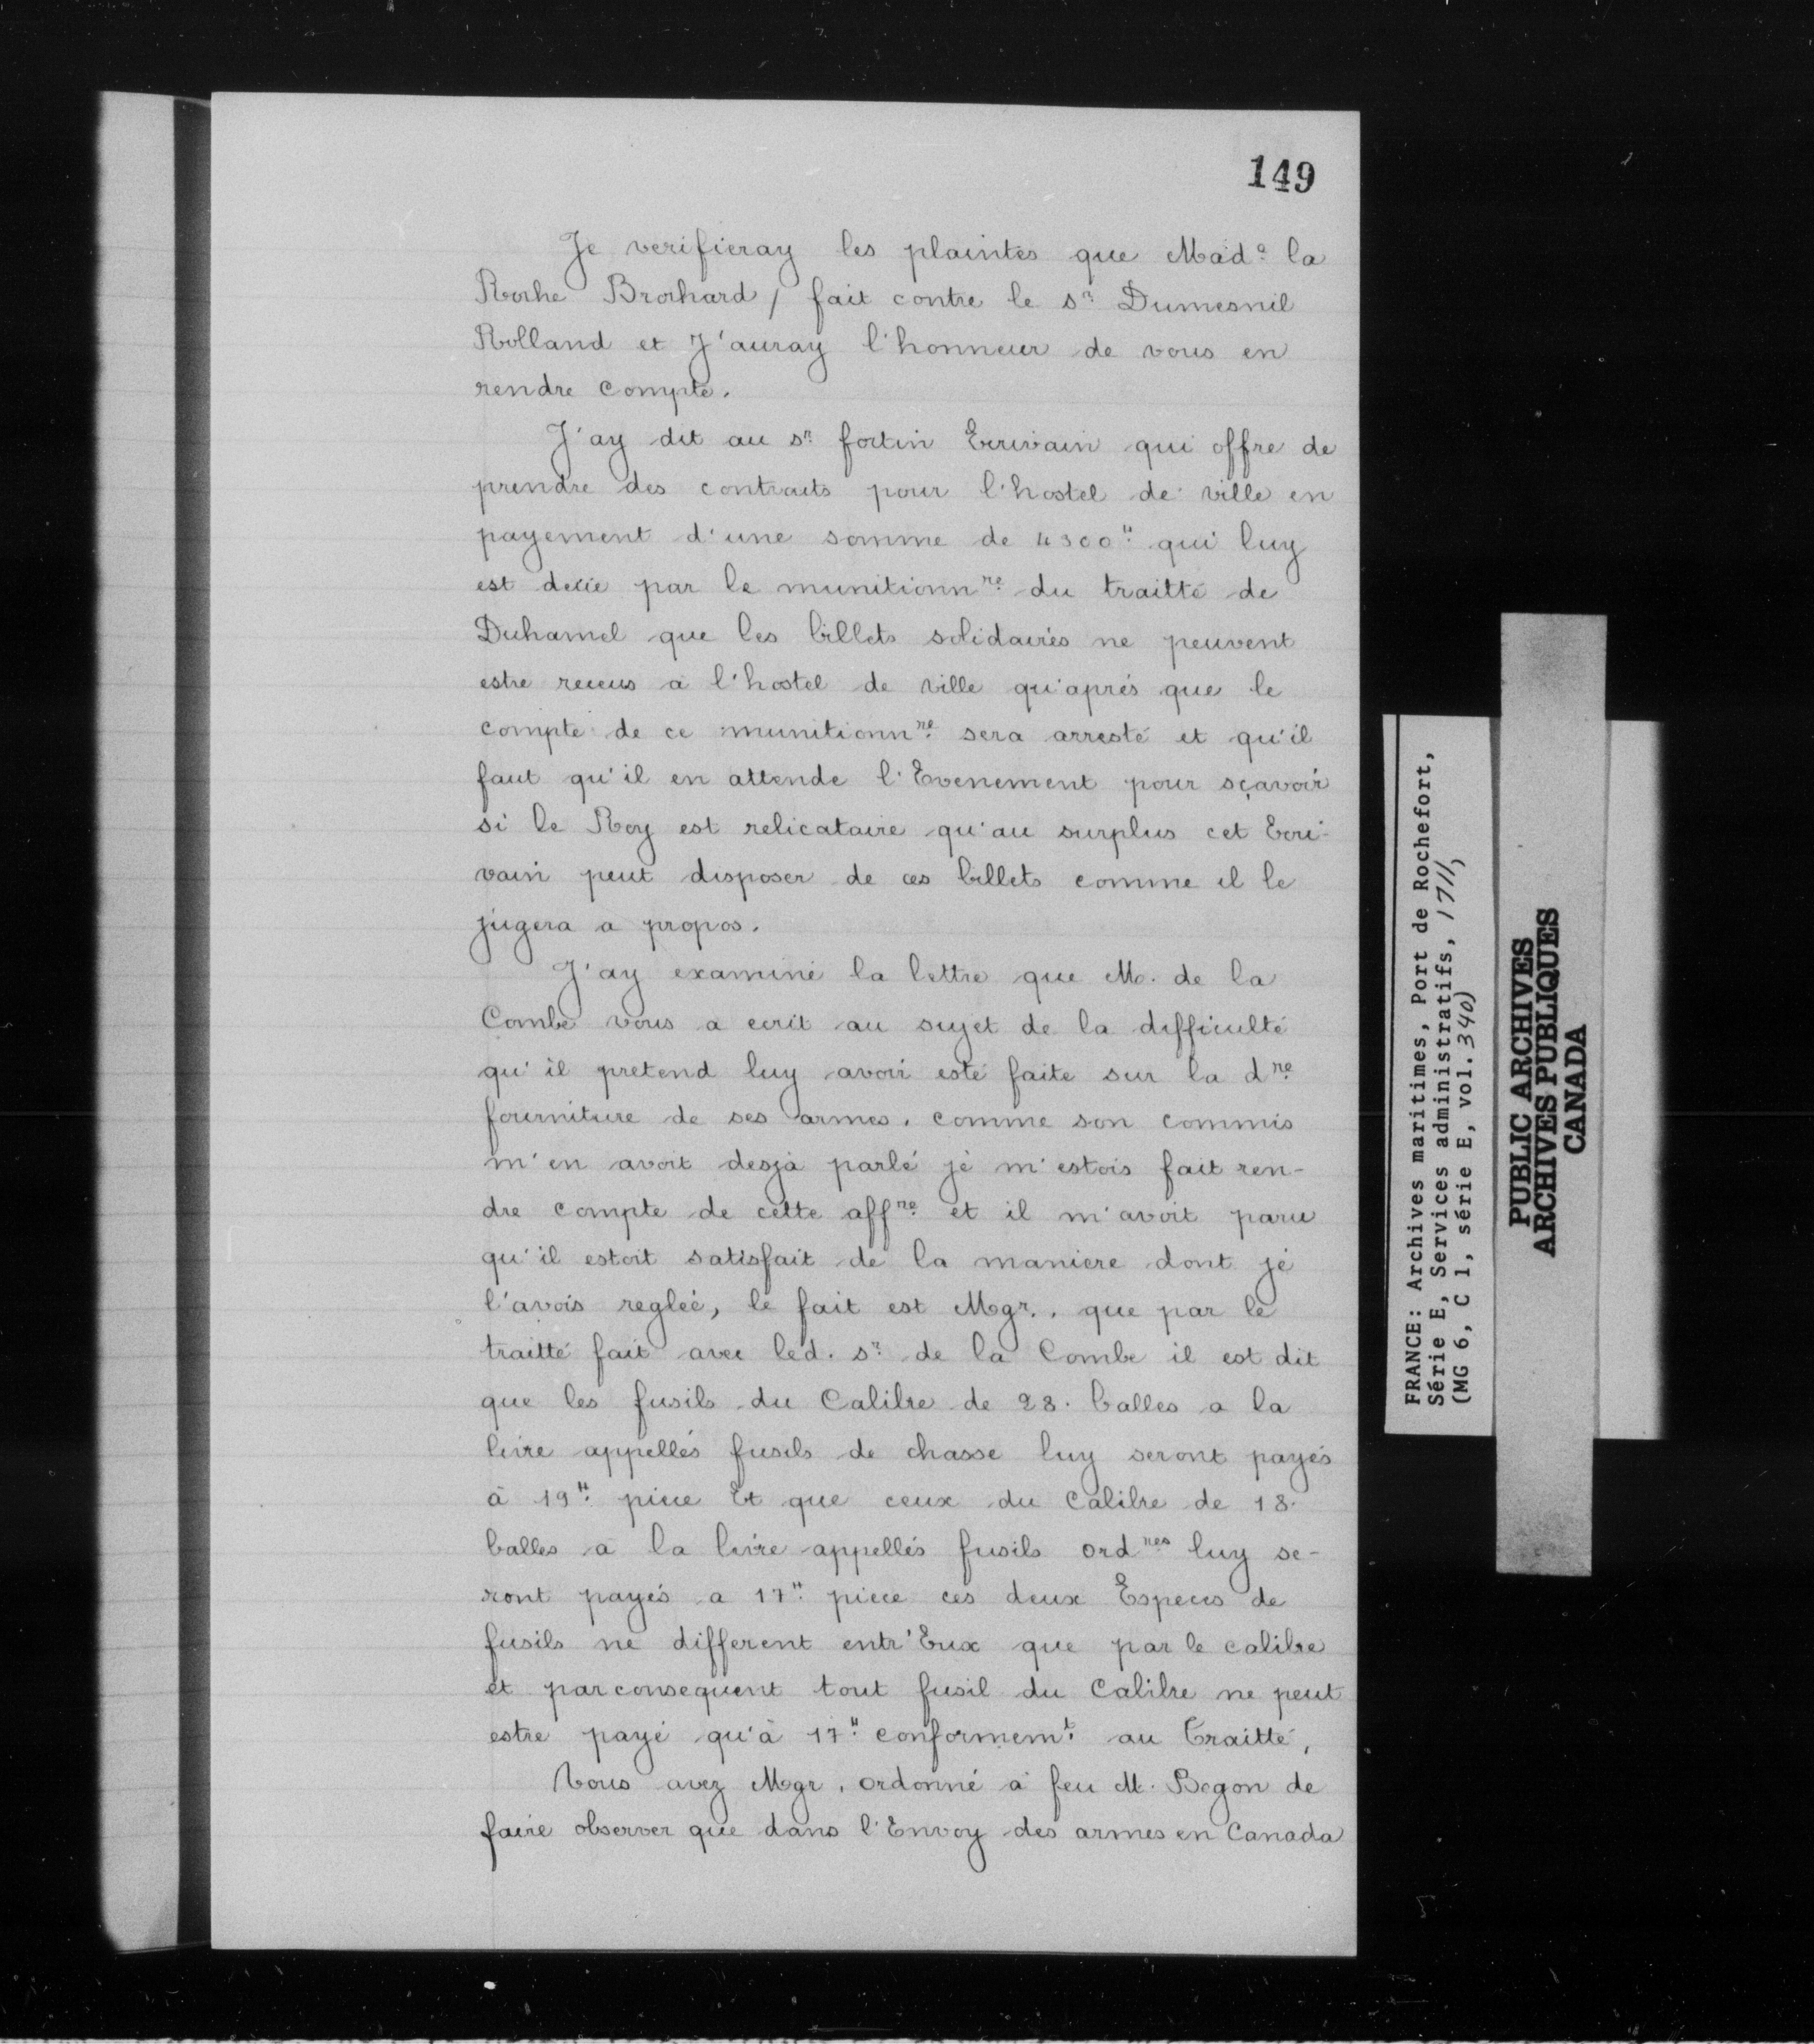 149
Je verifieray les plaintes que Mad.e la
Roche Brochard / fait contre le s.r Dumesnil
Rolland et J'auray l'honneur de vous en
rendre compte.
J'ay dit au s.r fortin Ecrivain qui offre de
prendre des contracts pour l'hostel de ville en
payement d'une somme de 4300.tt qui luy
est deüe par le munitionn.re du traitté de
Duhamel que les billets solidaires ne peuvent
estre receus a l'hostel de ville qu'aprés que le
compte de ce munitionn.re sera arresté et qu'il
faut qu'il en attende l'Evenement pour sçavoir
si le Roy est relicataire qu'au surplus cet Ecri-
vain peut disposer de ces billets comme il le
jugera a propos.
J'ay examiné la lettre que M. de la
Combe vous a ecrit au sujet de la difficulté
qu'il pretend luy avoir esté faite sur la d.re
fourniture de ses armes. comme son commis
m'en avoit desja parlé je m'estois fait ren-
dre compte de cette aff.re et il m'avoit paru
qu'il estoit satisfait de la maniere dont je
l'avois regleé, le fait est Mgr., que par le
traitté fait avec led. s.r de la Combe il est dit
que les fusils du Calibre de 28. balles a la
livre appellés fusils de chasse luy seront payés
à 19.tt piece Et que ceux du Calibre de 18.
balles a la livre appellés fusils ord.res luy se-
ront payés a 17.tt piece ces deux Especes de
fusils ne different entr'Eux que par le calibre
et parconsequent tout fusil du Calibre ne peut
estre payé qu'à 17.tt conformem.t au Traitté,
Vous avez Mgr. ordonné a feu M. Begon de
faire observer que dans l'Envoy des armes en Canada
FRANCE: Archives maritimes, Port de Rochefort,
Série E, Services administratifs, 1711,
(MG 6, C 1, série E, vol. 340)
PUBLIC ARCHIVES
ARCHIVES PUBLIQUES
CANADA